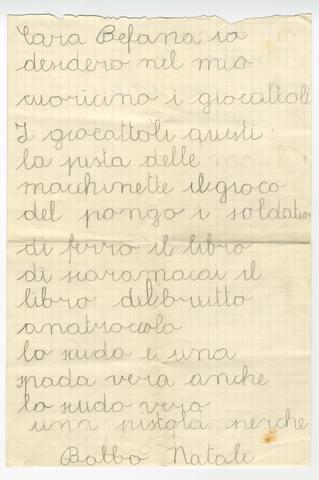 Cara Befana io
desidero nel mio
cuoricino i giocattoli
I giocattoli questi:
la pista delle
macchinette il gioco
del pongo i soldatini
di ferro il libro
di scaramacai il
libro del brutto
anatroccolo
lo scudo e una
spada vera anche
lo scudo vero
una pistola perche
Babbo Natale